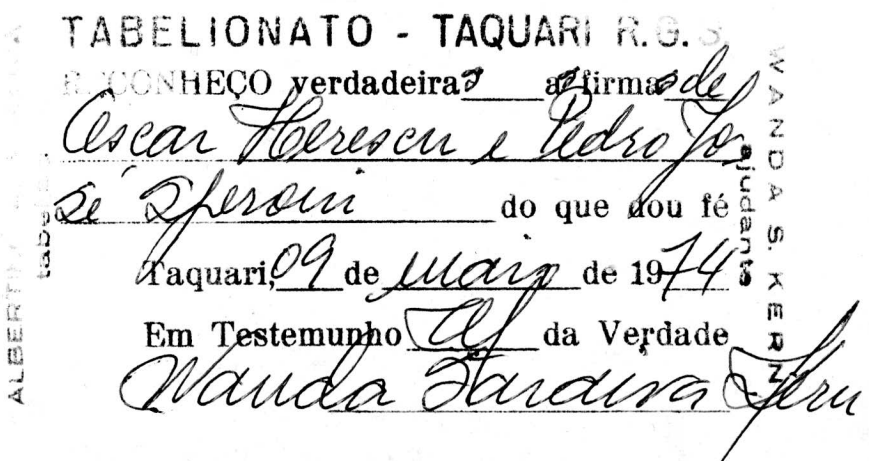 TABELIONATO - TAQUARI R.G.S.
RECONHEÇO verdadeiras as firmas de
Oscar Herescu e Pedro Jo
sé Speroni do que dou fé
Taquari, 09 de maio de 1974
Em Testemunho da Verdade
Wanda Kern
WANDA S. KERN
ajudante
ALBERTI
tabe